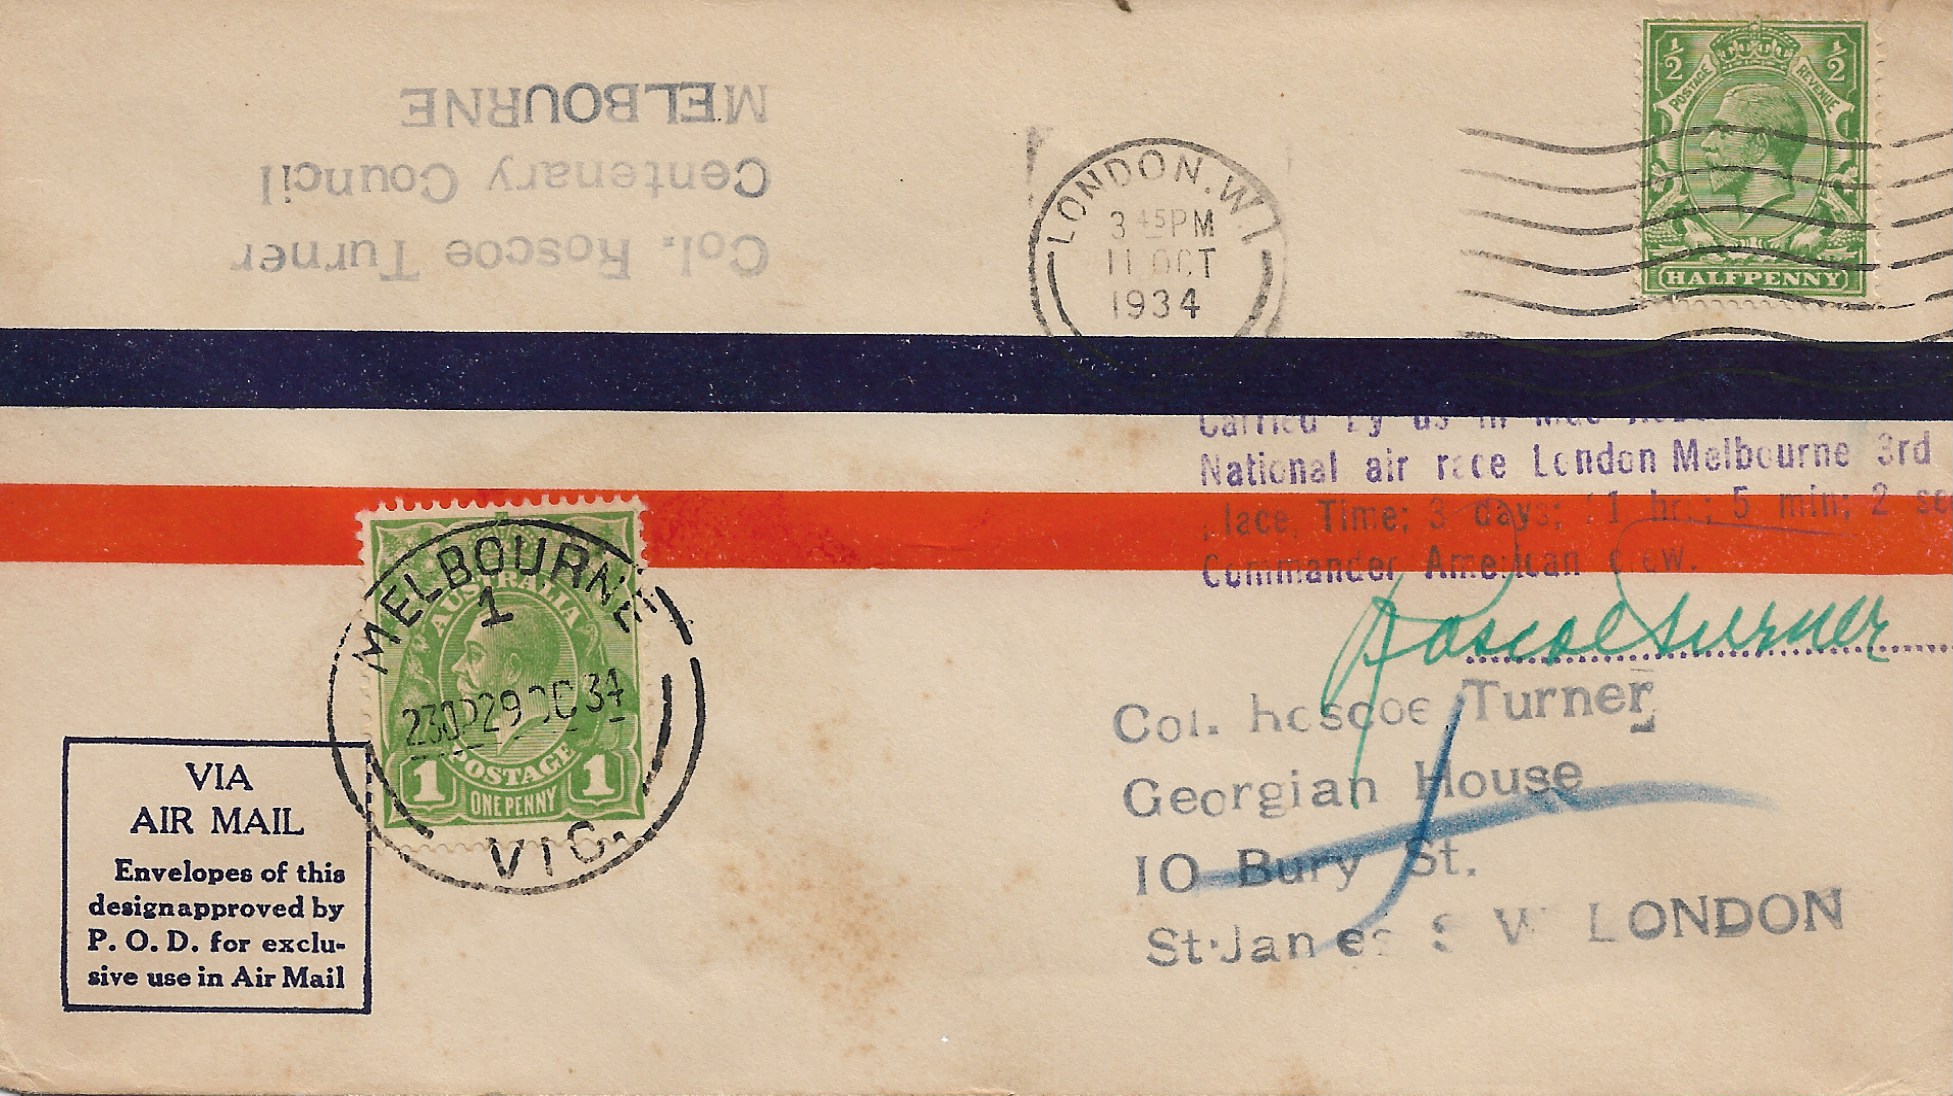 Col. Roscoe Turner
Centenary Council
MELBOURNE
LONDON.W.1
3 45PM
11 OCT
1934
1/2 1/2
POSTAGE REVENUE
HALFPENNY
Carried by us in
National air race London Melbourne 3rd
place, Time; 3 days; 1 hr.; 5 min; 2 se
Commander American Crew.
Roscoe Turner
MELBOURNE
1
AUSTRALIA
230P29 OC 34
POSTAGE
1 1
ONE PENNY
VIC.
Col. Roscoe Turner
Georgian House
10 Bury St.
St. James S W LONDON
VIA
AIR MAIL
Envelopes of this
design approved by
P. O. D. for exclu-
sive use in Air Mail